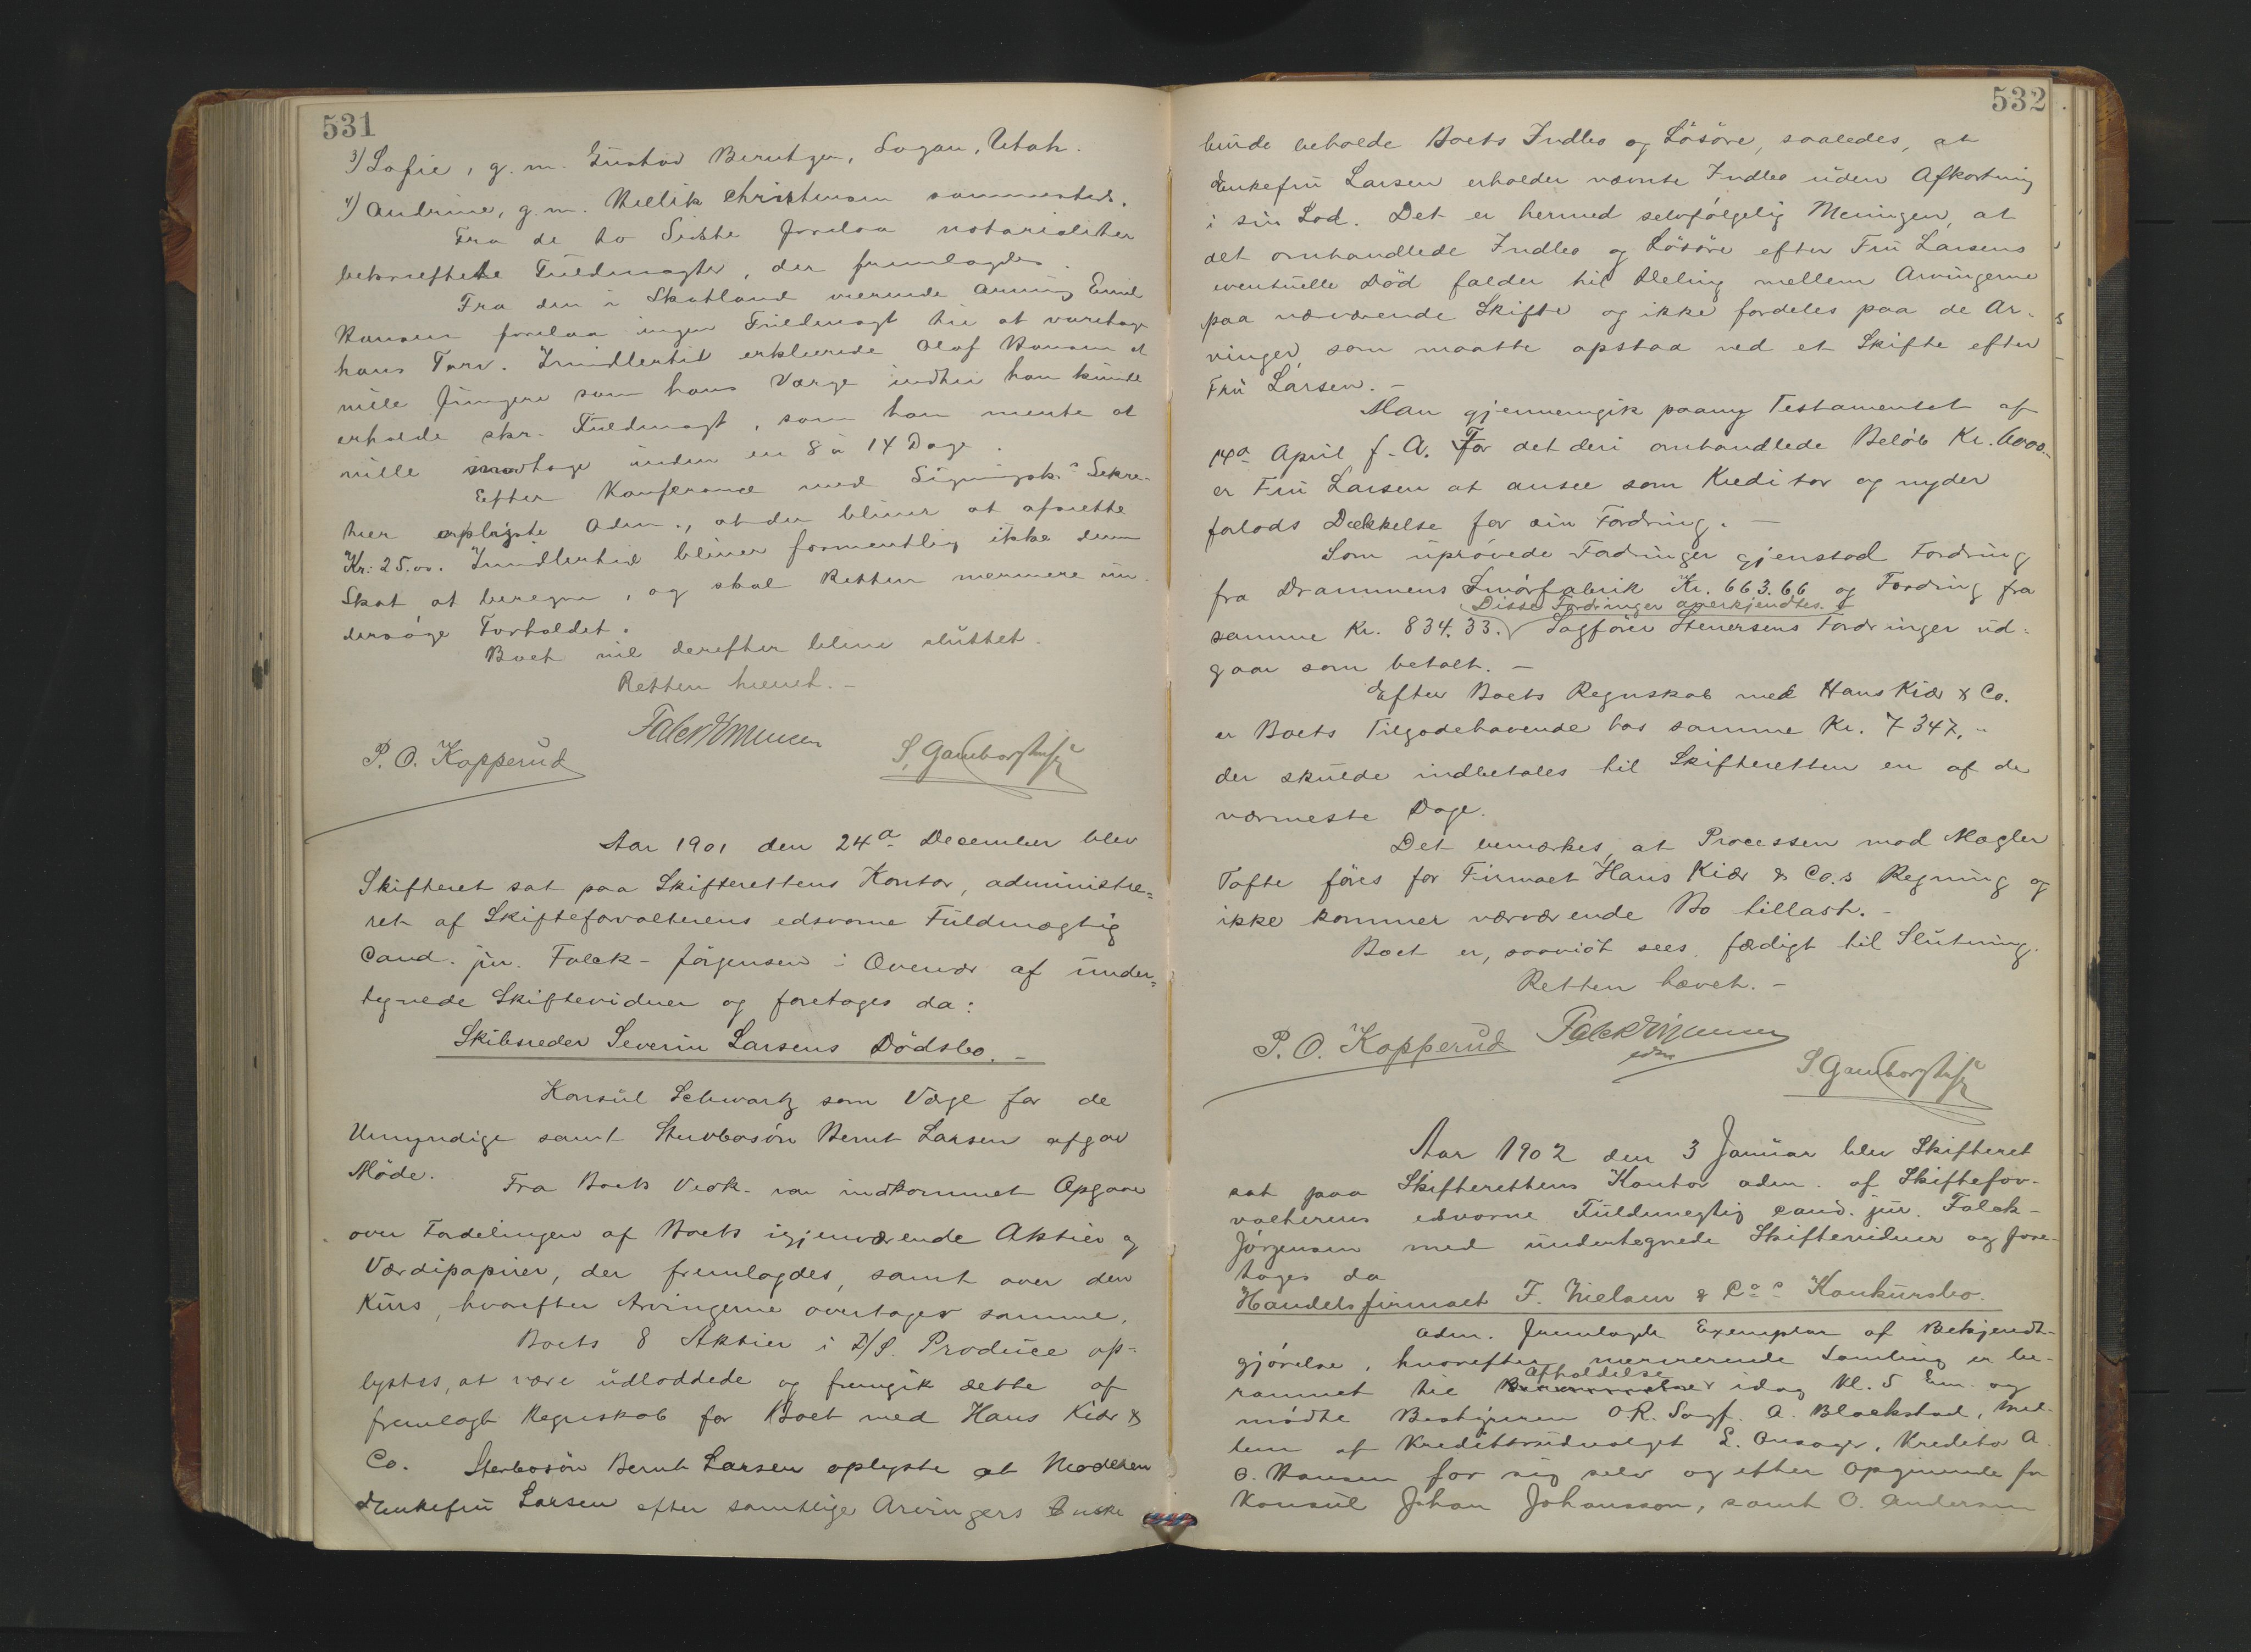 531
3) Sofie, g. m. Gustav Berntzen, Logan, Utah.
4) Andrine, g. m. Willik Christensen sammesteds.
Fra de to Sidste forelaa notarialiter
bekræftede Fuldmagter, der fremlagdes.
Fra den i Skotland værende Arving Emil
Hansen forelaa ingen Fuldmagt til at varetage
hans Tarv. Imidlertid erklærede Olaf Hansen at
ville fungere som hans Værge indtil han kunde
erholde skr. Fuldmagt, som han mente at
ville modtage inden en 8 à 14 Dage.
Efter Konferance med Sekre-
tær oplyste Adm., at der bliver at afsætte
Kr: 25.00. Imidlertid bliver formentlig ikke denne
Skat at beregne, og skal Retten nærmere un-
dersøge Forholdet.
Boet vil derefter blive sluttet.
Retten hævet. -
Falck Jørgensen
P. O. Kopperud
S. Gamborg
Aar 1901 den 24a December blev
Skifteret sat paa Skifterettens Kontor, administre=
ret af Skifteforvalterens edsvorne Fuldmægtig
Cand. jur. Falck-Jørgensen i Overvær af under=
tegnede Skiftevidner og foretoges da:
Skibsreder Severin Larsens Dödsbo. -
Konsul Schwartz som Værge for de
Umyndige samt Stervbosön Bernt Larsen afgav
Möde. Fra Boets Vedk. var indkommet Opgave
over Fordelingen af Boets igjenværende Aktier og
Værdipapirer, der fremlagdes, samt over den
Kurs, hvorefter Arvingerne overtager samme.
Boets 8 Aktier i D/S. Produce op-
lystes, at være udloddede og fremgik dette af
fremlagt Regnskab for Boet med Hans Kiær &
Co. Stervbosön Bernt Larsen oplyste at Moderen
Enkefru Larsen efter samtlige Arvingers Önske
532
burde beholde Boets Indbo og Lösöre, saaledes, at
Enkefru Larsen erholder nævnte Indbo uden Afkortning
i sin Lod. Det er hermed selvfölgelig Meningen, at
det omhandlede Indbo og Lösöre efter Fru Larsens
eventuelle Död falder til Deling mellem Arvingerne
paa nærværende Skifte og ikke fordeles paa de Ar-
vinger, som maatte opstaa ved et Skifte efter
Fru Larsen. -
Man gjennemgik paany Testamentet af
14a April f. A. For det deri omhandlede Belöb Kr. 6000.-
er Fru Larsen at ansee som Kreditor og nyder
forlods Dækkelse for sin Fordring. -
Som uprövede Fordringer gjenstod Fordring
fra Drammens Smörfabrik Kr. 663.66 og Fordring fra
Disse Fordringer anerkjendtes.
samme Kr. 834.33. Sagförer Stenersens Fordringer ud-
gaar som betalt. -
Efter Boets Regnskab med Hans Kiær & Co.
er Boets Tilgodehavende hos samme Kr. 7347,-
der skulde indbetales til Skifteretten en af de
nærmeste Dage.
Det bemærkes, at Processen mod Mægler
Tofte föres for Firmaet Hans Kiær & Co.s Regning og
ikke kommer nærværende Bo tillast. -
Boet er, saavidt sees, færdigt til Slutning.
Retten hævet. -
P. O. Kopperud
Falck Jørgensen
edsv
S. Gamborg
Aar 1902 den 3 Januar blev Skifteret
sat paa Skifterettens Kontor adm. af Skiftefor-
valterens edsvorne Fuldmegtig cand. jur. Falck-
Jørgensen med undertegnede Skiftevidner og fore-
toges da
Handelsfirmaet F. Nielsen & Co.s Konkursbo.
Adm. fremlagde Exemplar af Bekjendt-
gjörelse, hvorefter nærværende Samling er be-
Afholdelse
rammet til idag Kl. 5 Em. og
mödte Bestyreren O.R. Sagf. A. Blackstad, Med-
lem af Kreditorudvalget L. Onsager, Kreditor A.
O. Hansen for sig selv og efter Opgivende for
Konsul Johan Johansson, samt O. Andersen